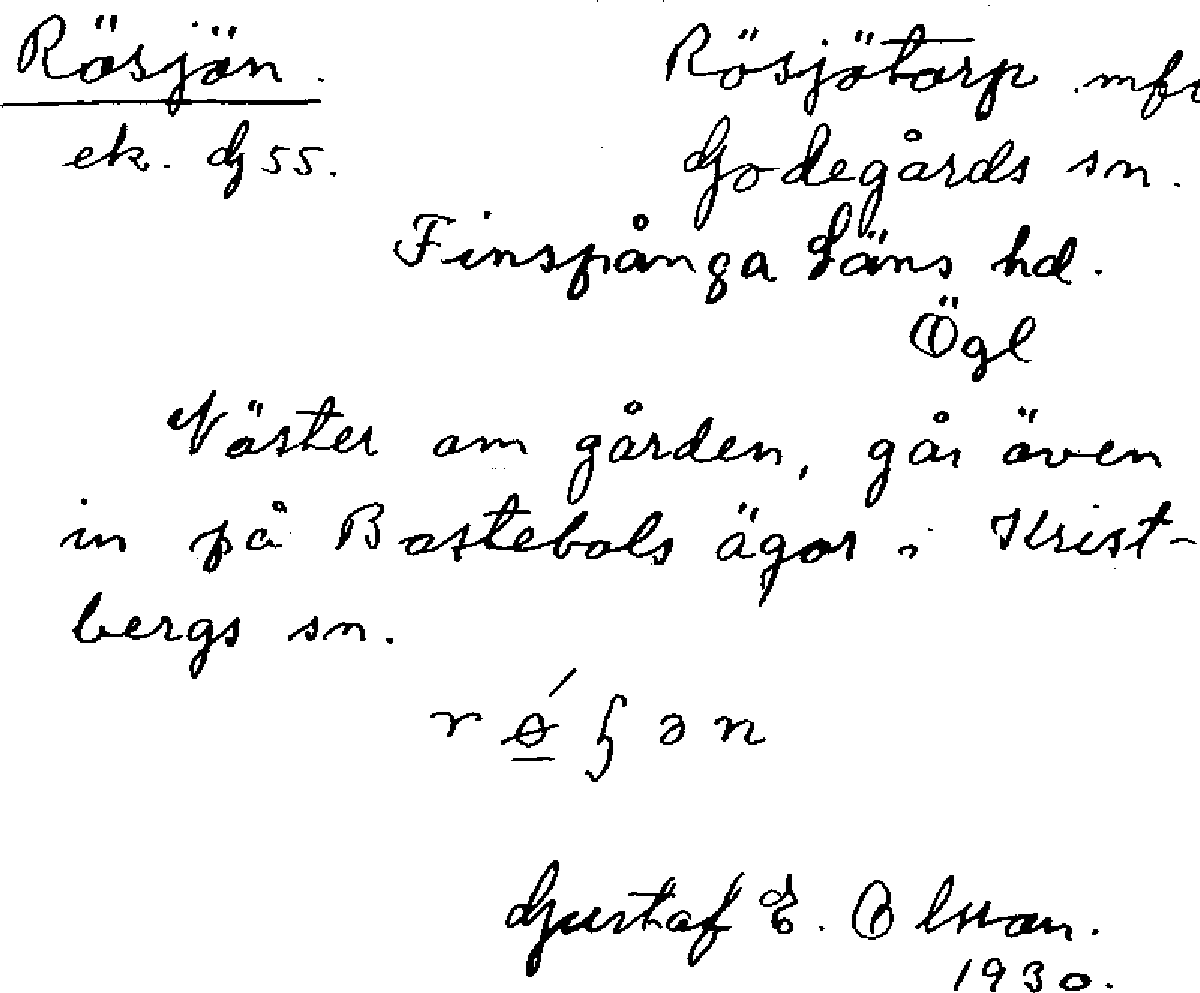 Rösjön.
Rösjötorp mfr
ek. G 55.
Godegårds sn.
Finspånga Läns hd.
Ögl
Väster om gården, går även
in på Bastebols ägor i Krist-
bergs sn.
Gustaf E. Olsson.
1930.